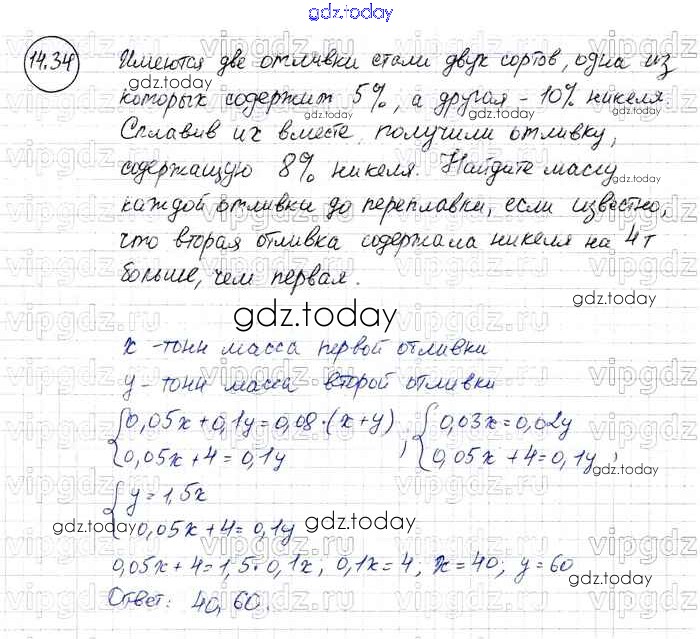 gdz.today
14.34 Имеются две отливки стали двух сортов, одна из
которых содержит 5%, а другая - 10% никеля.
Сплавив их вместе, получили отливку,
содержащую 8% никеля. Найдите массу
каждой отливки до переплавки, если известно,
что вторая отливка содержала никеля на 4т
больше, чем первая.
gdz.today
x - тонн масса первой отливки
y - тонн масса второй отливки
{0,05x+0,1y=0,08·(x+y) ; {0,03x=0,02y
{0,05x+4=0,1y {0,05x+4=0,1y ;
{y=1,5x
{0,05x+4=0,1y
0,05x+4=1,5·0,1x; 0,1x=4; x=40; y=60
Ответ: 40, 60.